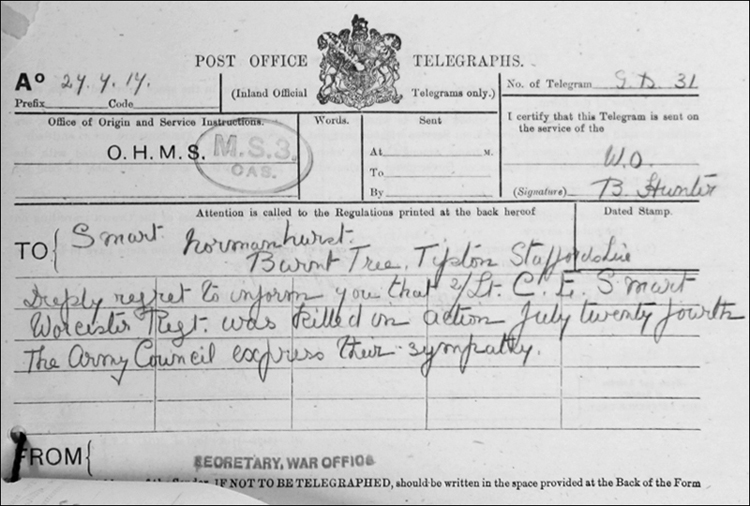 POST OFFICE TELEGRAPHS.
A° 27.7.17.
Prefix Code
(Inland Official Telegrams only.)
No. of Telegram G.D. 31
Office of Origin and Service Instructions.
Words.
Sent
I certify that this Telegram is sent on
the service of the
O.H.M.S.
M.S.3.
CAS.
At M.
To
By
W.O.
(Signature) B. Hunter
Attention is called to the Regulations printed at the back hereof
Dated Stamp.
TO { Smart. Normanhurst.
Burnt Tree, Tipton Staffordshire
Deeply regret to inform you that 2/Lt. C. E. Smart
Worcester Regt. was killed in action July twenty fourth
The Army Council express their sympathy.
FROM {
SECRETARY, WAR OFFICE
IF NOT TO BE TELEGRAPHED, should be written in the space provided at the Back of the Form